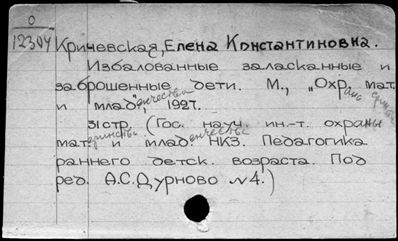 0
12304
Кричевская, Елена Константиновна.
Избалованные заласканные и
заброшенные дети. М., „Охр. мат.
и млад“ 1927.
31 стр. (Гос. науч. ин.-т. охраны
мат. и млад НКЗ. Педагогика
раннего детск. возраста. Под
ред. А.С. Дурново №4.)